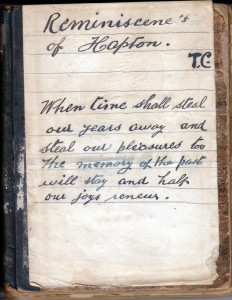 Reminiscene's
of Hapton.
T.C
When time shall steal
our years away and
steal our pleasures too
The memory of the past
will stay and half
our joys renew.